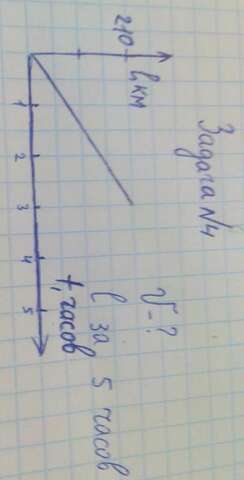 Задача №4
l, км
210
1 2 3 4 5
t, часов
V-?
l за 5 часов